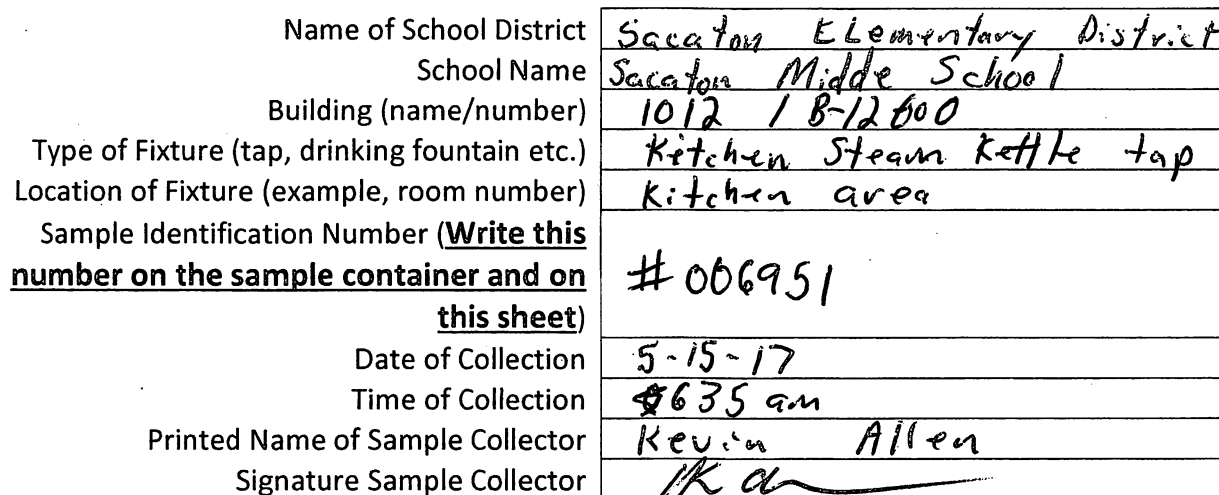 Name of School District Sacaton Elementary District
School Name Sacaton Midde School
Building (name/number) 1012 / B-12600
Type of Fixture (tap, drinking fountain etc.) Kitchen Steam Kettle tap
Location of Fixture (example, room number) Kitchen area
Sample Identification Number (Write this
number on the sample container and on
this sheet) #006951
Date of Collection 5-15-17
Time of Collection 0635 am
Printed Name of Sample Collector Kevin Allen
Signature Sample Collector